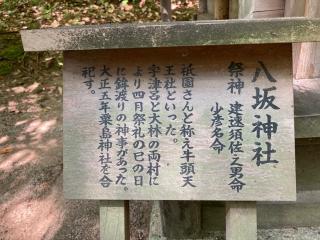 八坂神社
祭神 建速須佐之男命
少彦名命
祇園さんと称え牛頭天
王社といった。
宇津呂と大林の両村に
より四月祭礼の巳の日
に鉾渡りの神事があった。
大正五年粟島神社を合
祀す。